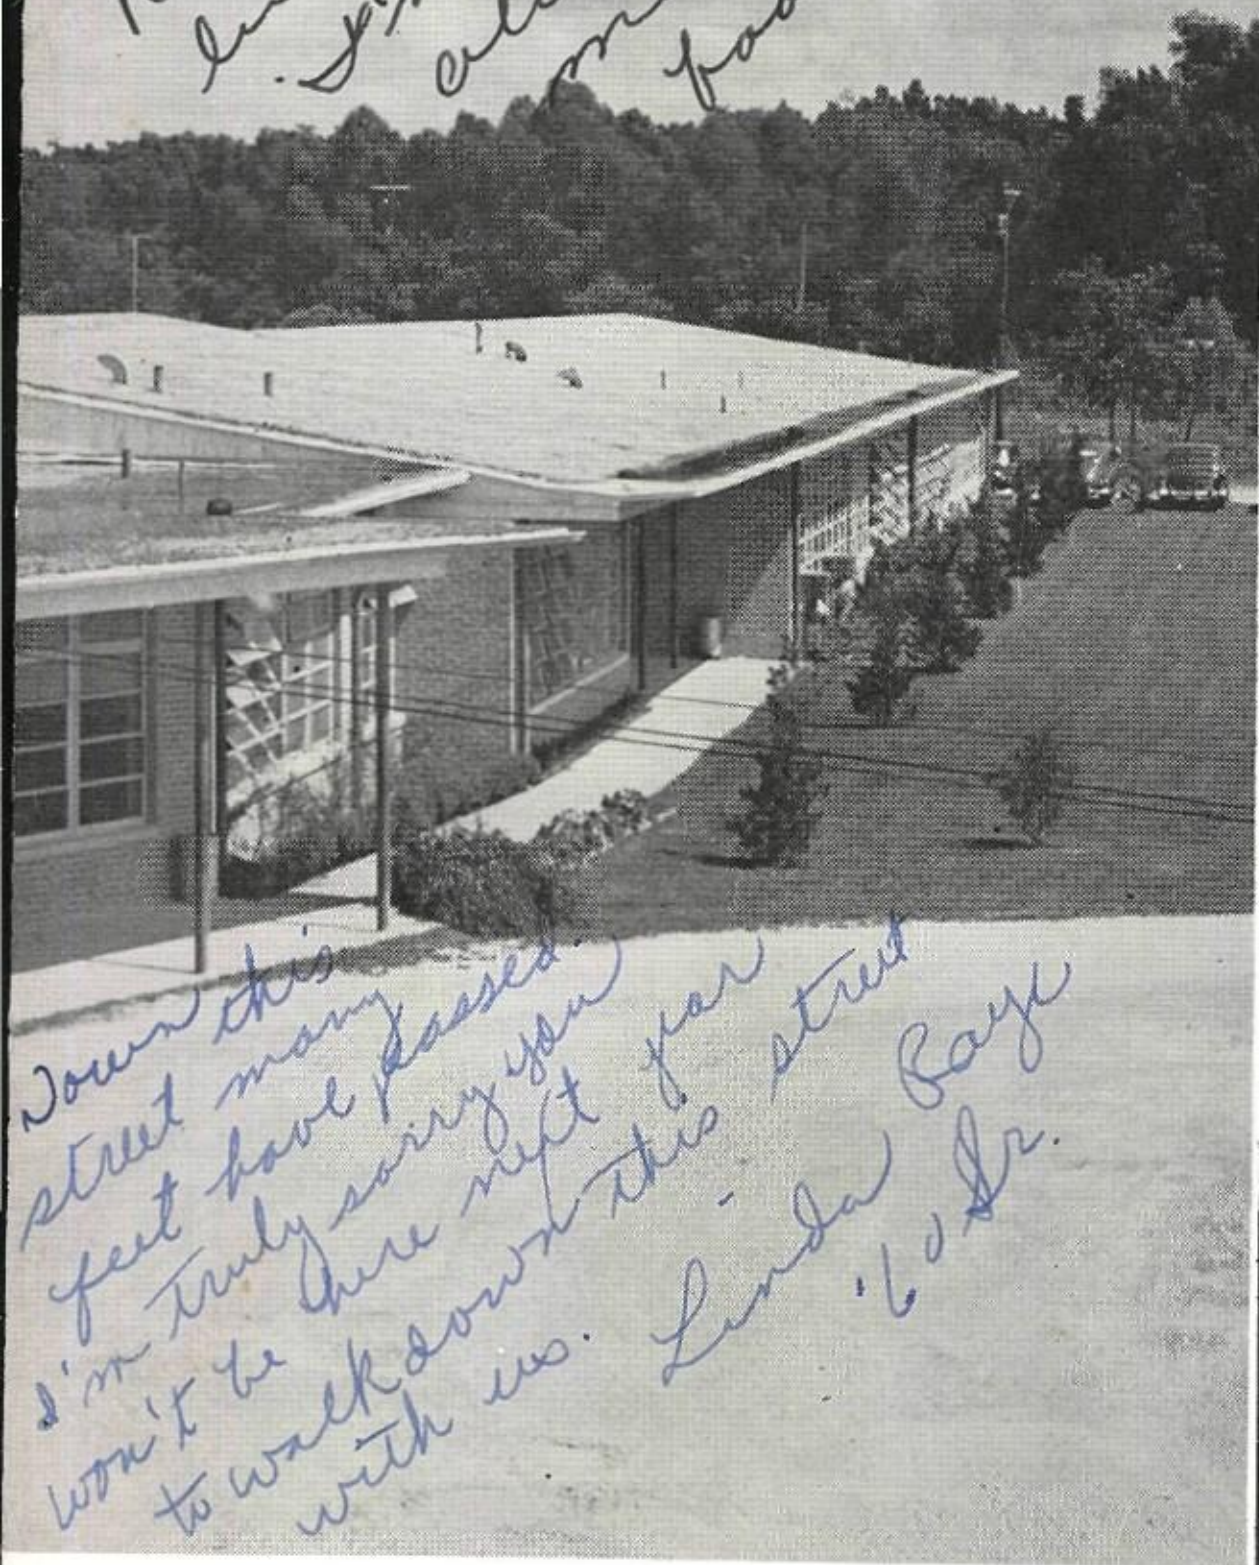 Down this
street many
feet have passed.
I'm truly sorry you
won't be here next year
to walk down this street
with us. Linda Raye
'60 Sr.